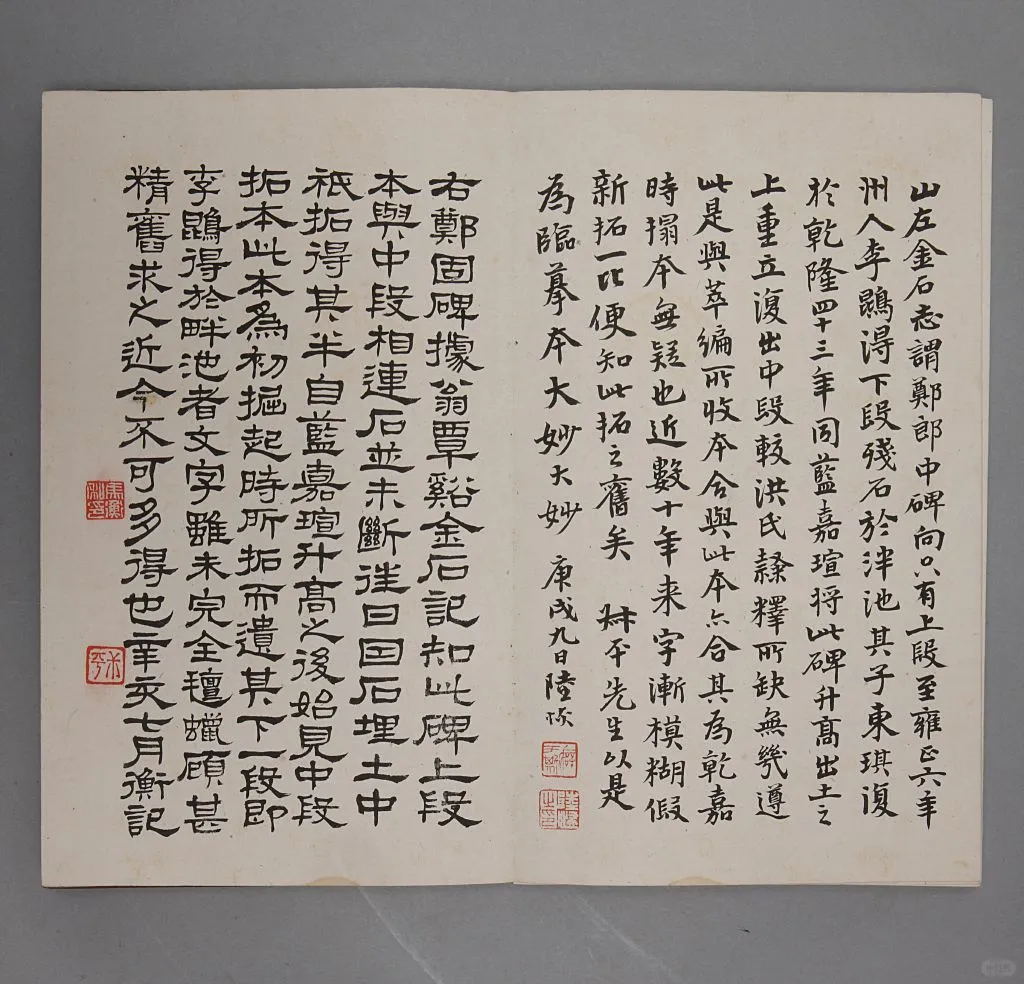 山左金石志謂鄭郎中碑向只有上段至雍正六年
州人李鵾淂下段殘石於泮池其子東琪復
於乾隆四十三年同藍嘉瑄将此碑升高出土之
上重立復出中段較洪氏隸釋所缺無幾遵
此是與萃編所收本合與此本亦合其為乾嘉
時搨本無疑也近數十年来字漸模糊假
新拓一比便知此拓之舊矣 叔平先生以是
為臨摹本大妙大妙 庚戌九日陸恢
右鄭固碑據翁覃谿金石記知此碑上段
本與中段相連石並未斷徃日因石埋土中
祇拓得其半自藍嘉瑄升高之後始見中段
拓本此本為初掘起時所拓而遺其下一段即
李鵾得於畔池者文字雖未完全氊蠟頗甚
精舊求之近今不可多得也辛亥七月衡記
馬衡
叔平